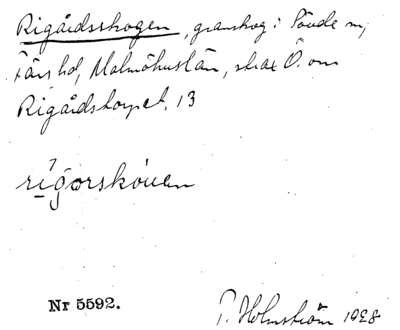 Rigårdsskogen, granskog i Sövde sn,
Färs hd, Malmöhus län, strax Ö. om
Rigårdstorpet, 13
rígorskóuen
Nr 5592.
P. Holmström 1928